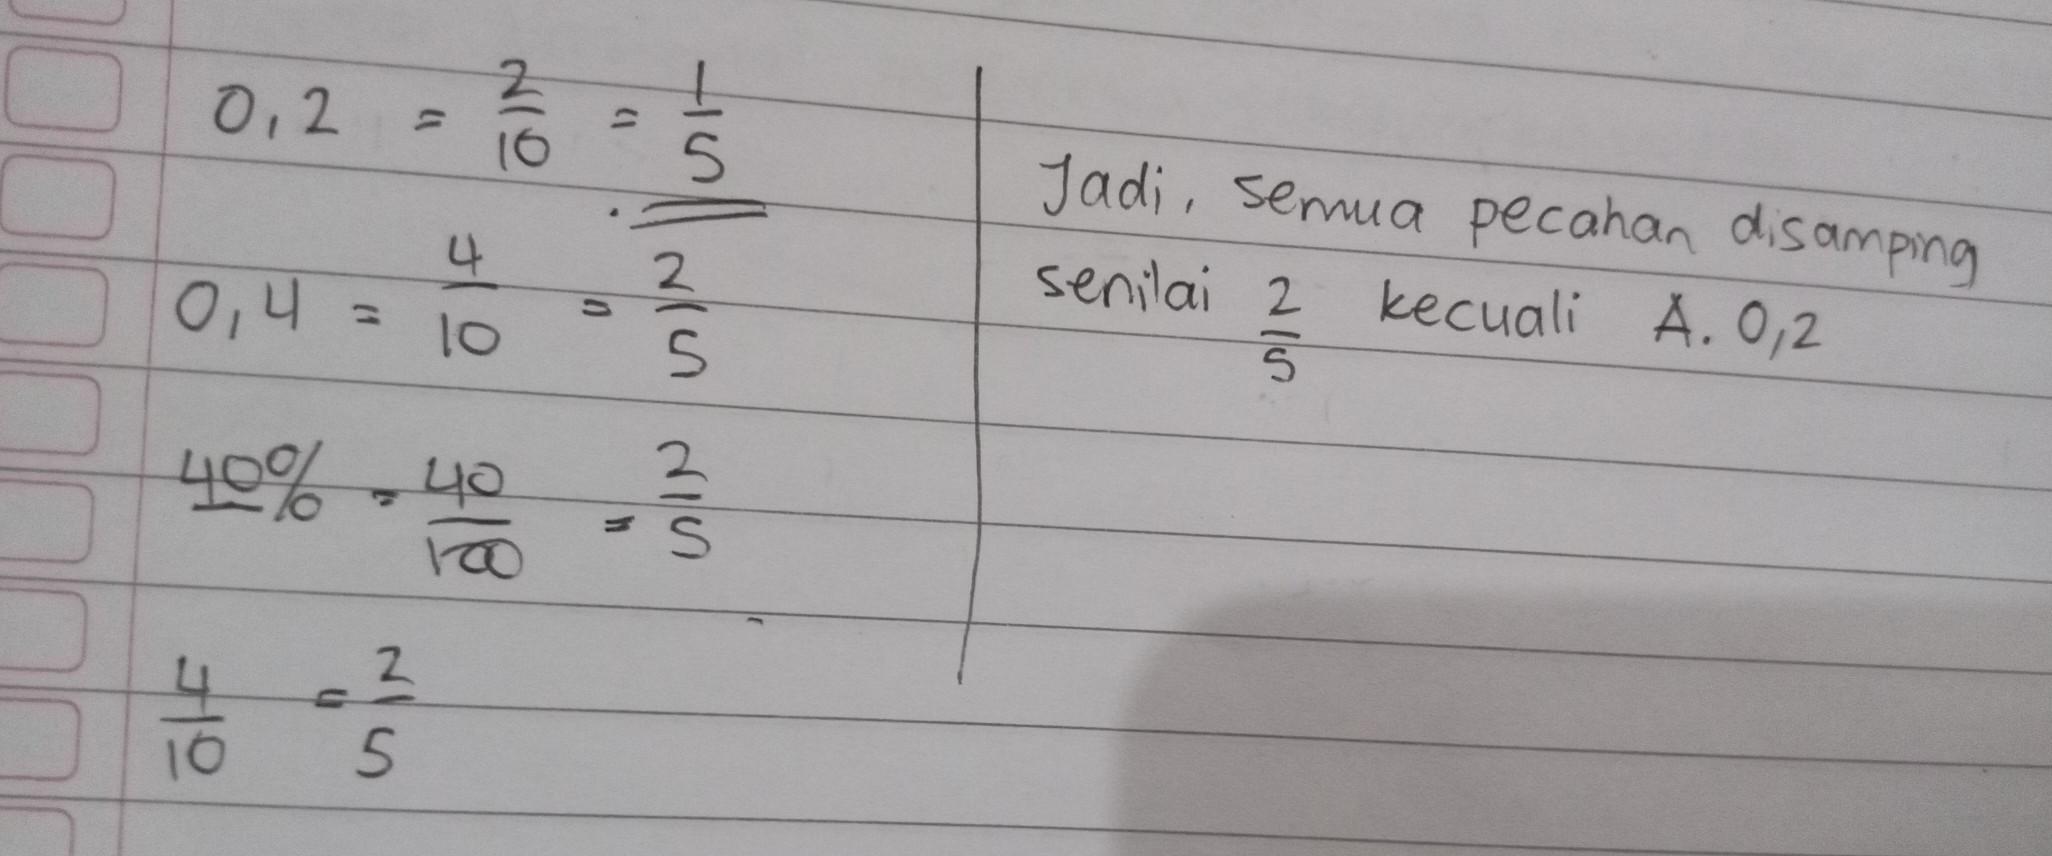 0,2 = 2/10 = 1/5
0,4 = 4/10 = 2/5
40% = 40/100 = 2/5
4/10 = 2/5
Jadi, semua pecahan disamping
senilai 2/5 kecuali A. 0,2